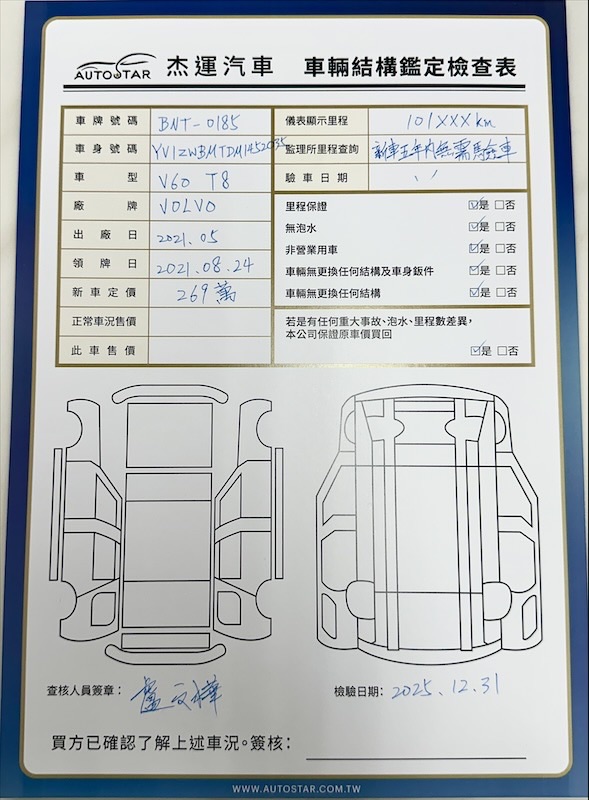 AUTOSTAR 杰運汽車 車輛結構鑑定檢查表
車牌號碼 BNT-0185
儀表顯示里程 101XXX km
車身號碼 YV1ZWBMTDM1452035
監理所里程查詢 新車五年內無需驗車
車型 V60 T8
驗車日期
廠牌 VOLVO
里程保證 ☑是 □否
無泡水 ☑是 □否
出廠日 2021.05
非營業用車 ☑是 □否
領牌日 2021.08.24
車輛無更換任何結構及車身鈑件 ☑是 □否
新車定價 269萬
車輛無更換任何結構 ☑是 □否
正常車況售價
若是有任何重大事故、泡水、里程數差異，
本公司保證原車價買回
此車售價
☑是 □否
查核人員簽章：
檢驗日期：2025.12.31
買方已確認了解上述車況。簽核：
WWW.AUTOSTAR.COM.TW